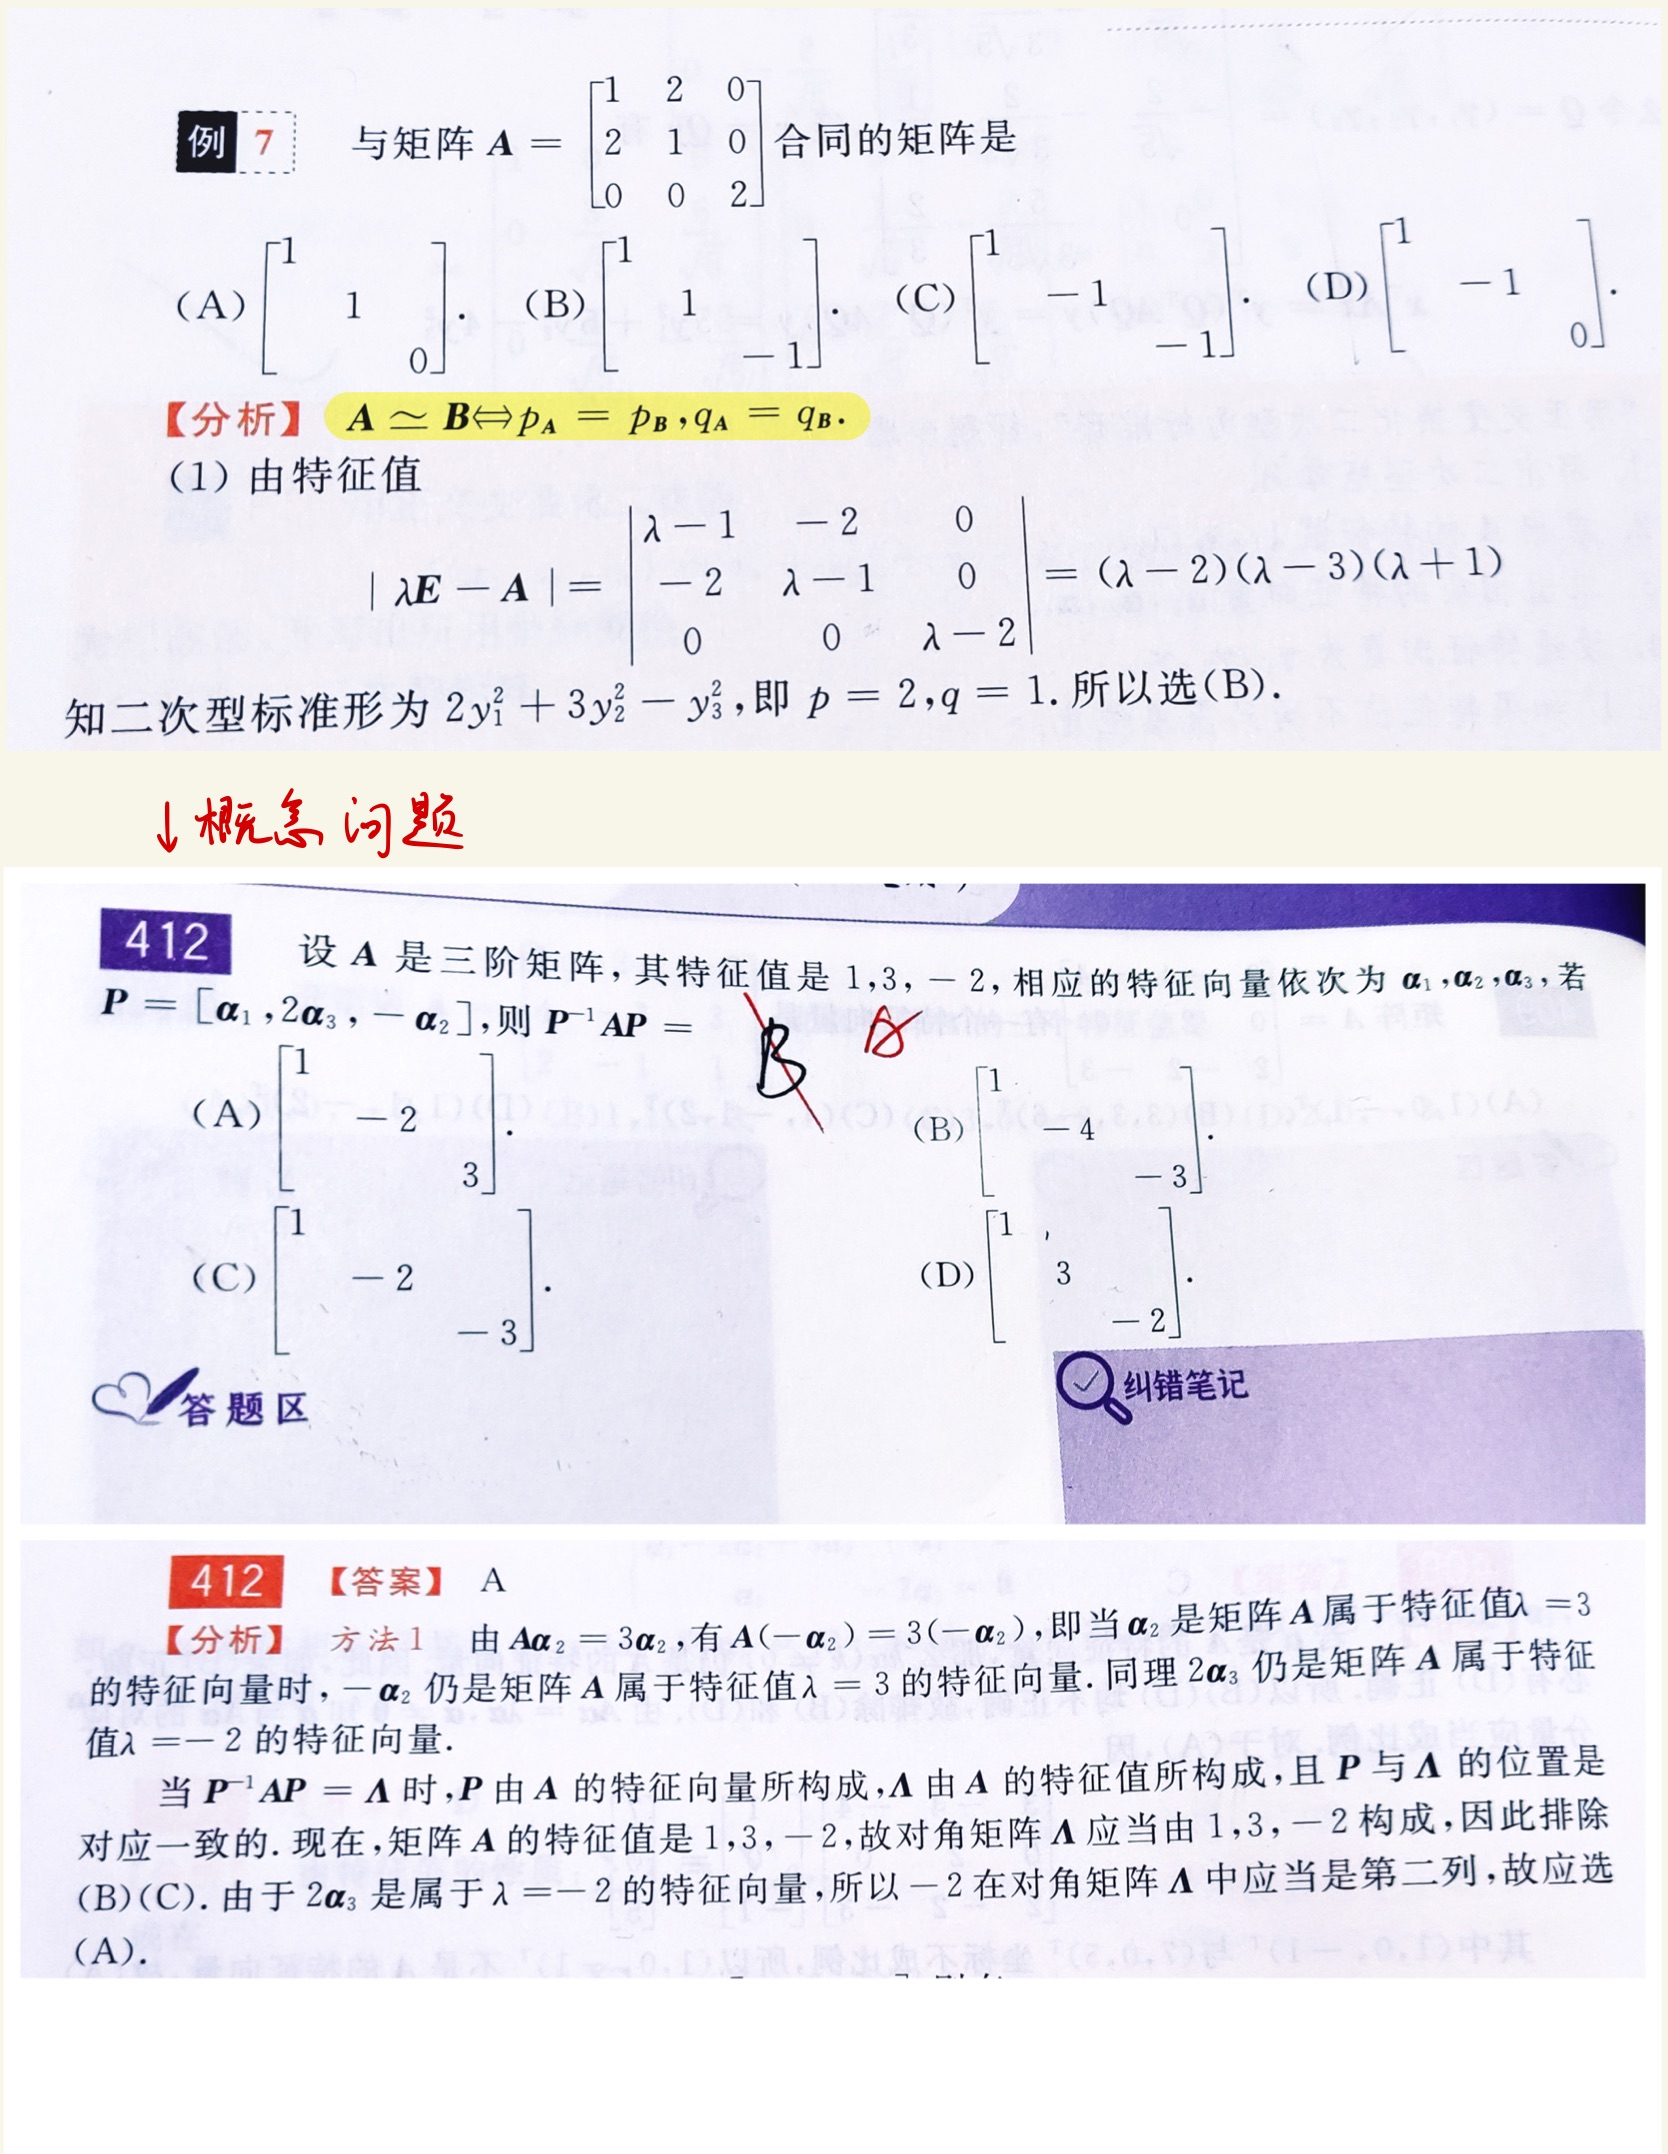 例 7 与矩阵 A = [1 2 0; 2 1 0; 0 0 2] 合同的矩阵是
(A) [1 1 0]. (B) [1 1 -1]. (C) [1 -1 -1]. (D) [1 -1 0].
【分析】 A ≃ B⇔p_A = p_B, q_A = q_B.
(1) 由特征值
| λE - A | = |λ-1 -2 0; -2 λ-1 0; 0 0 λ-2| = (λ-2)(λ-3)(λ+1)
知二次型标准形为 2y₁² + 3y₂² - y₃², 即 p = 2, q = 1. 所以选(B).
↓概念问题
412 设 A 是三阶矩阵, 其特征值是 1,3,-2, 相应的特征向量依次为 α₁,α₂,α₃, 若
P = [α₁,2α₃,-α₂], 则 P⁻¹AP =
B A
(A) [1 -2 3]. (B) [1 -4 -3].
(C) [1 -2 -3]. (D) [1 3 -2].
答题区
纠错笔记
412 【答案】 A
【分析】 方法1 由 Aα₂ = 3α₂, 有 A(-α₂) = 3(-α₂), 即当 α₂ 是矩阵 A 属于特征值λ = 3
的特征向量时, -α₂ 仍是矩阵 A 属于特征值 λ = 3 的特征向量. 同理 2α₃ 仍是矩阵 A 属于特征
值λ =-2 的特征向量.
当 P⁻¹AP = Λ 时, P 由 A 的特征向量所构成, Λ 由 A 的特征值所构成, 且 P 与 Λ 的位置是
对应一致的. 现在, 矩阵 A 的特征值是 1,3,-2, 故对角矩阵 Λ 应当由 1,3,-2 构成, 因此排除
(B)(C). 由于 2α₃ 是属于 λ =-2 的特征向量, 所以 -2 在对角矩阵 Λ 中应当是第二列, 故应选
(A).